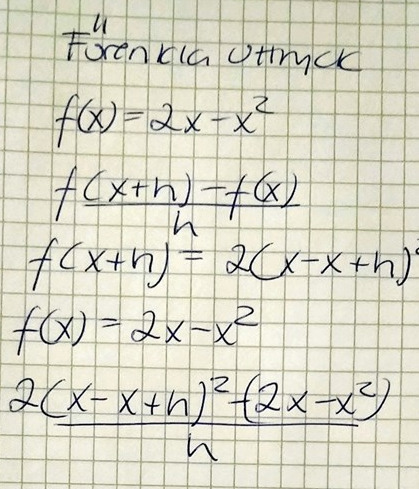 Förenkla uttryck
f(x) = 2x - x²
f(x+h) - f(x)
h
f(x+h) = 2(x - x + h)²
f(x) = 2x - x²
2(x - x + h)² - (2x - x²)
h